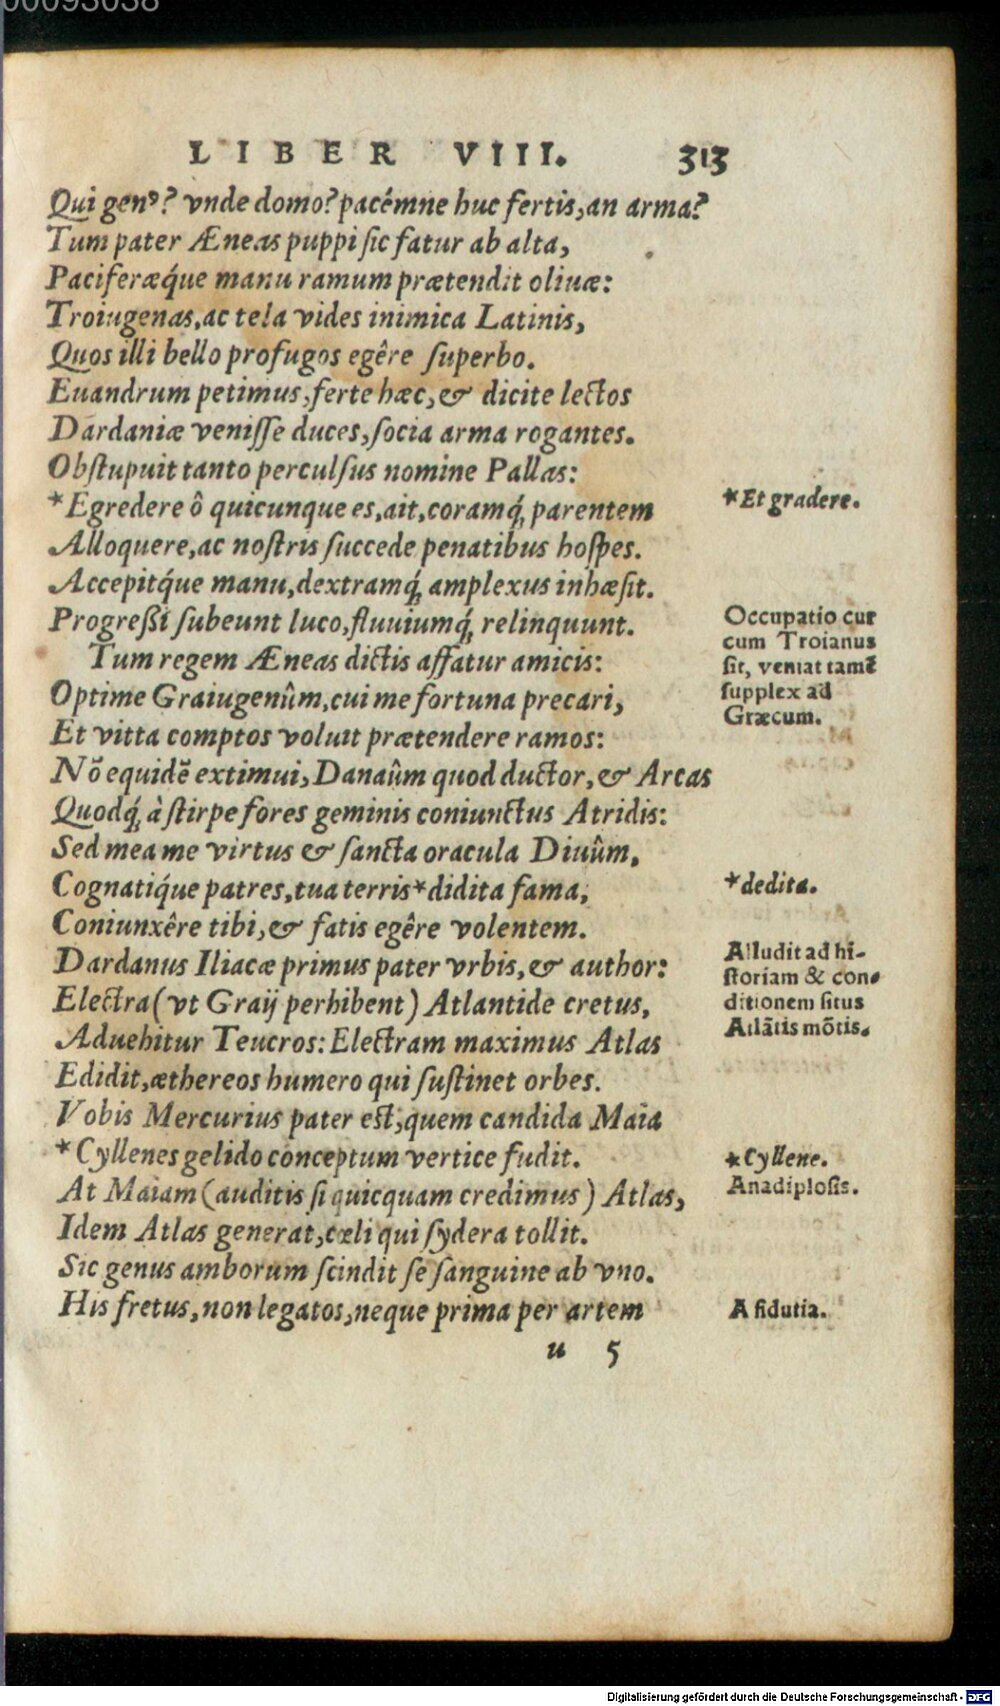 00093038
LIBER VIII. 313
Qui genꝰ? vnde domo? pacémne huc fertis, an arma?
Tum pater Æneas puppi ſic fatur ab alta,
Paciferæq́ue manu ramum prætendit oliuæ:
Troiugenas, ac tela vides inimica Latinis,
Quos illi bello profugos egêre ſuperbo.
Euandrum petimus, ferte hæc, & dicite lectos
Dardaniæ veniſſe duces, ſocia arma rogantes.
Obſtupuit tanto perculſus nomine Pallas:
*Egredere ô quicunque es, ait, coramq́; parentem
*Et gradere.
Alloquere, ac noſtris ſuccede penatibus hoſpes.
Accepitq́ue manu, dextramq́; amplexus inhæſit.
Progreßi ſubeunt luco, fluuiumq́; relinquunt.
Tum regem Æneas dictis affatur amicis:
Optime Graiugenûm, cui me fortuna precari,
Et vitta comptos voluit prætendere ramos:
Nō equidē extimui, Danaûm quod ductor, & Arcas
Quodq́; à ſtirpe fores geminis coniunctus Atridis:
Occupatio cur
cum Troianus
ſit, veniat tamē
ſupplex ad
Græcum.
Sed mea me virtus & ſancta oracula Diuûm,
Cognatiq́ue patres, tua terris *didita fama,
*dedita.
Coniunxêre tibi, & fatis egêre volentem.
Dardanus Iliacæ primus pater vrbis, & author:
Electra (vt Graij perhibent) Atlantide cretus,
Aduehitur Teucros: Electram maximus Atlas
Alludit ad hi-
ſtoriam & con-
ditionem ſitus
Atlātis mōtis.
Edidit, æthereos humero qui ſuſtinet orbes.
Vobis Mercurius pater eſt, quem candida Maia
*Cyllenes gelido conceptum vertice fudit.
*Cyllene.
At Maiam (auditis ſi quicquam credimus) Atlas,
Anadiploſis.
Idem Atlas generat, cœli qui ſydera tollit.
Sic genus amborum ſcindit ſe ſanguine ab vno.
His fretus, non legatos, neque prima per artem
A fidutia.
u 5
Digitalisierung gefördert durch die Deutsche Forschungsgemeinschaft - DFG